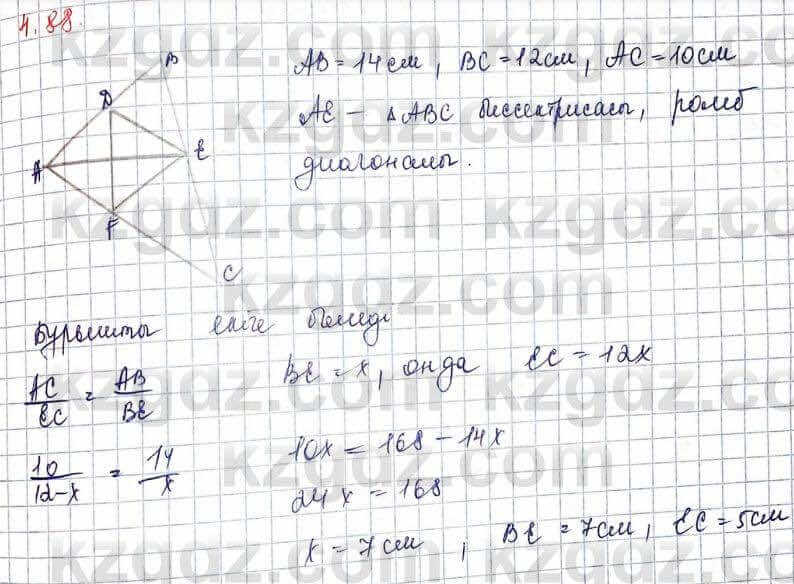 4.88.
B
D
A
E
F
C
AB = 14 см, BC = 12 см, AC = 10 см
AE – △ABC биссектрисасы, ромб
диагоналы.
Бұрышты екіге бөледі
AC/EC = AB/BE
BE = x, онда EC = 12x
10/12-x = 14/x
10x = 168 - 14x
24x = 168
x = 7 см, BE = 7 см, EC = 5 см
kzgdz.com